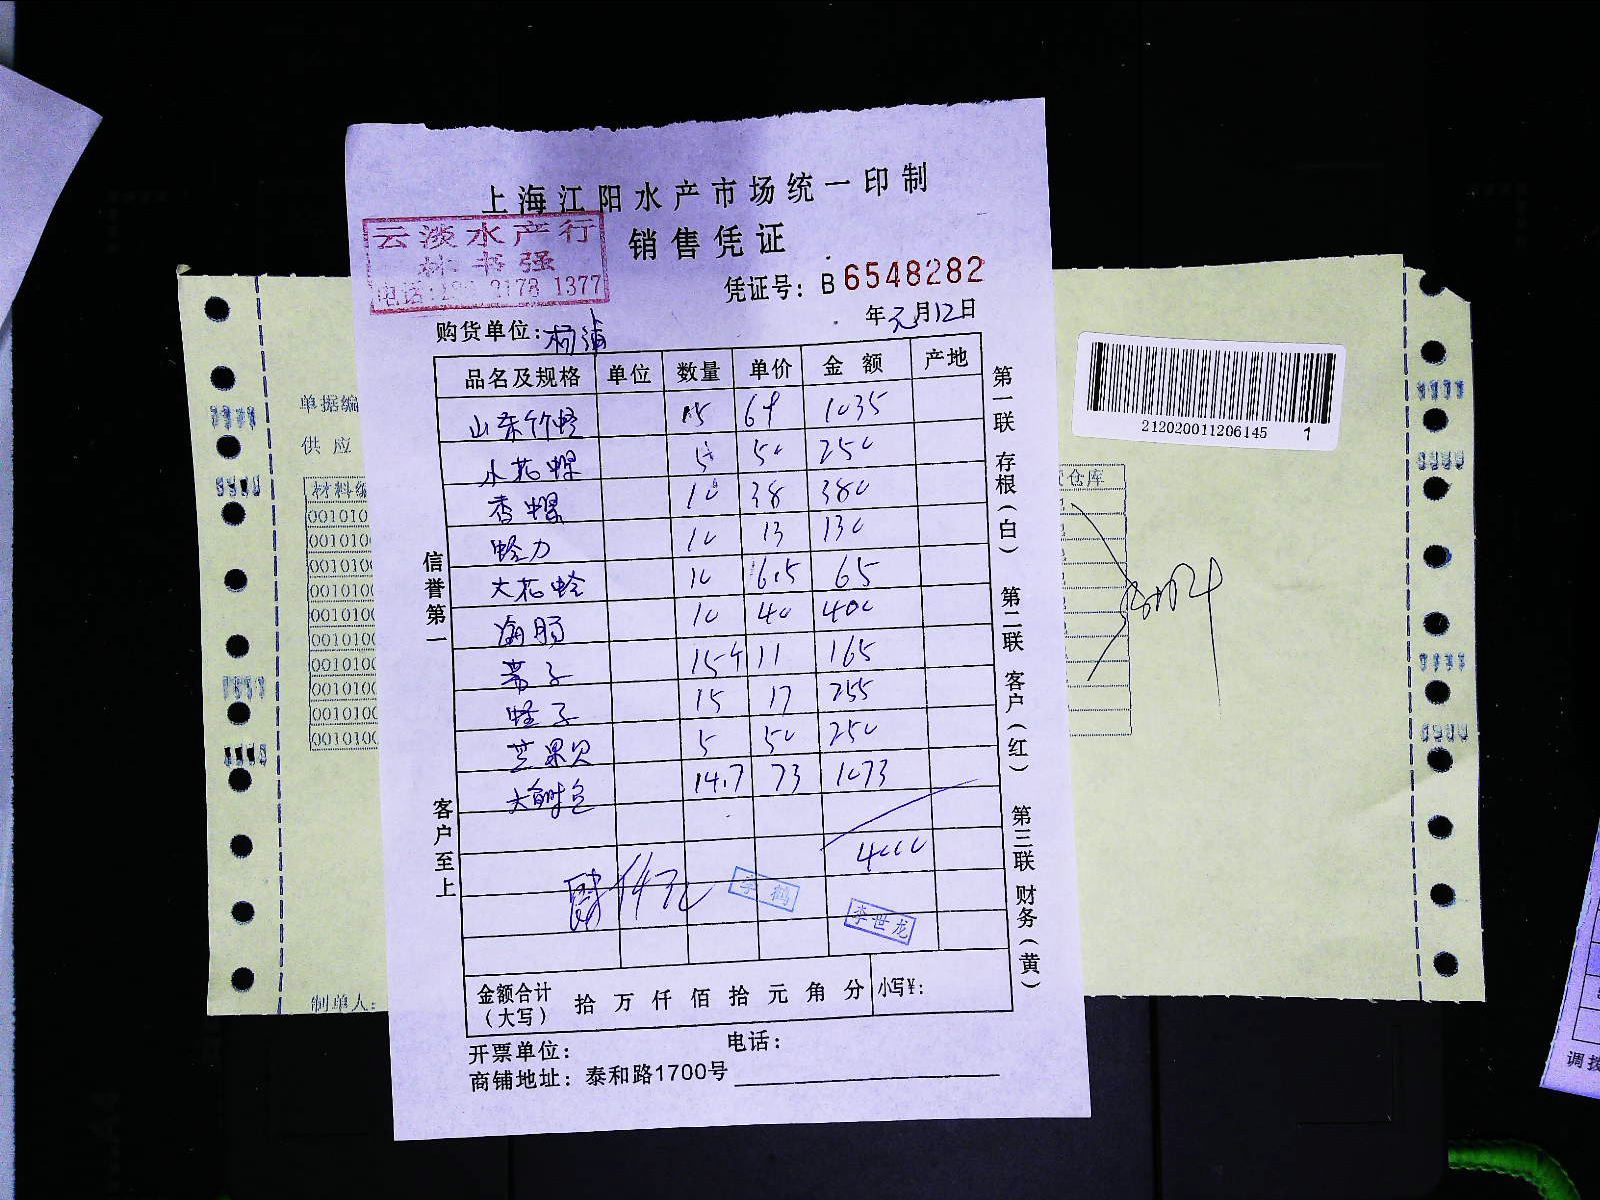 上海江阳水产市场统一印制
云淡水产行
销售凭证
林书强
凭证号：B 6548282
1377
年元月12日
购货单位：杨浦
品名及规格 单位 数量 单价 金额 产地
山东竹蛏 15 69 1035
水花螺 5 50 250
香螺 10 38 380
蛏力 10 13 130
大花蛏 10 6.5 65
海肠 10 40 400
15斤 11 165
蛏子 15 17 255
芒果贝 5 50 250
14.7 73 1073
4000
李鹤
李世龙
金额合计（大写） 拾 万 仟 佰 拾 元 角 分 小写¥：
开票单位： 电话：
商铺地址：泰和路1700号
信誉第一
客户至上
第一联 存根（白） 第二联 客户（红） 第三联 财务（黄）
单据编
供应
材料编
001010
001010
001010
001010
001010
001010
001010
001010
001010
001010
制单人：
仓库
212020011206145 1
调拨